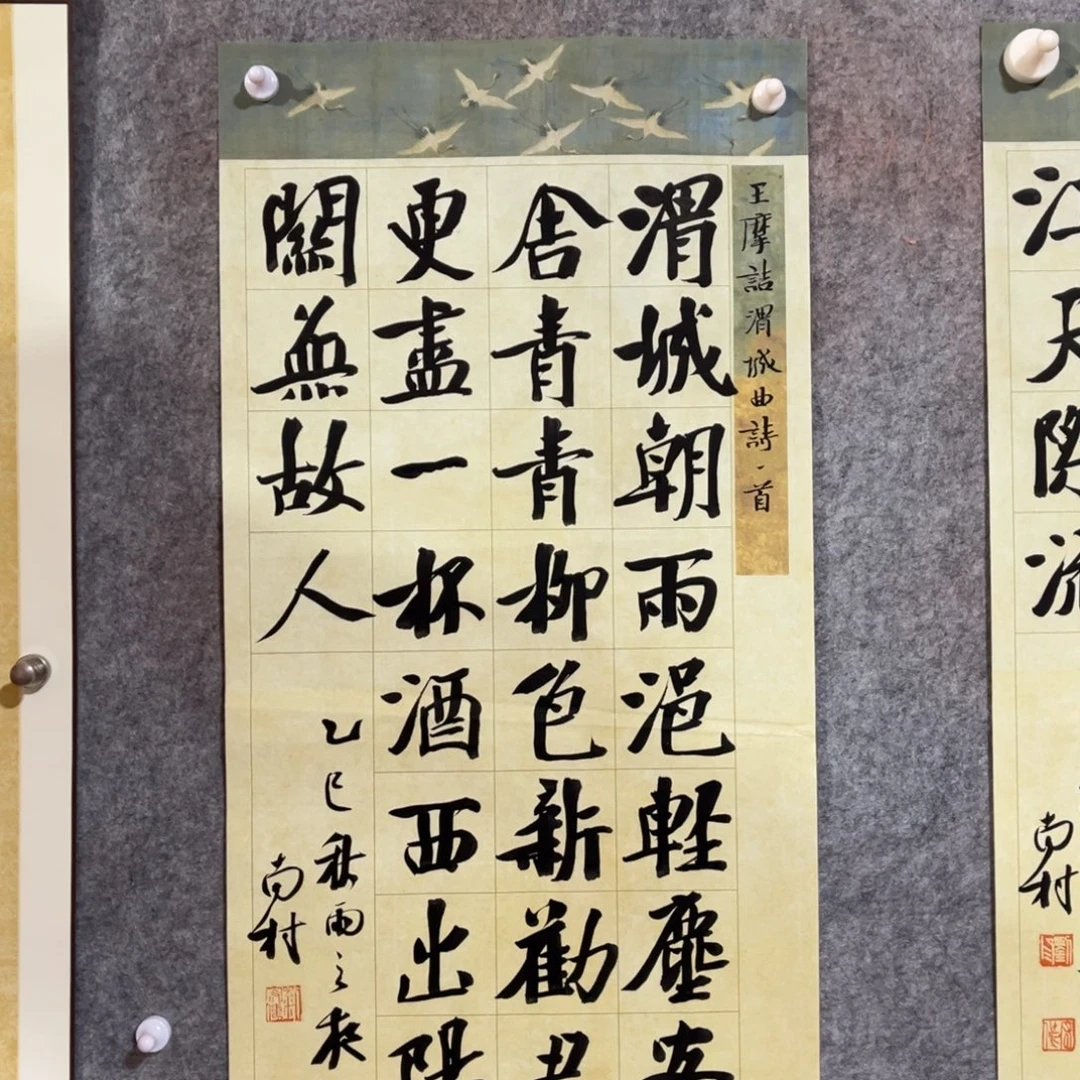 王摩詰渭城曲詩一首
渭城朝雨浥輕塵客
舍青青柳色新勸君
更盡一杯酒西出陽
關無故人
乙巳秋雨之夜
尚村
江天際流
尚村